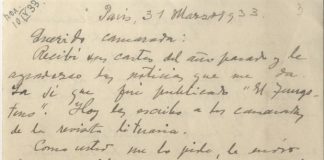 Paris, 31 Marzo 1933.
Querido camarada:
Recibí sus cartas del año pasado y le
agradezco las noticias que me da.
Ya sé que fué publicado "El
Hoy les escribo a los camaradas
de la revista lituana.
Como usted me lo pide, le envío